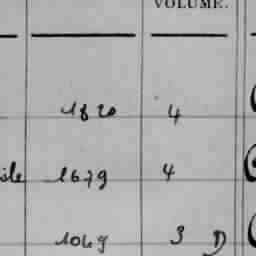 VOLUME.
1820 4
ile 1679 4
1049 3 D